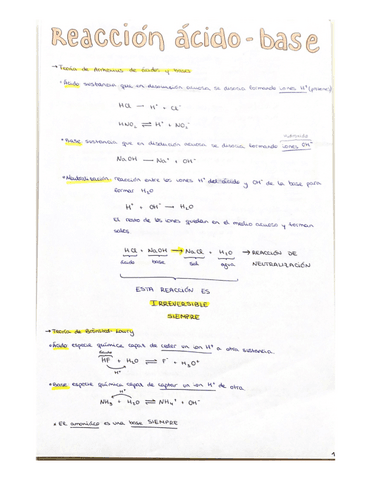 Reacción ácido-base
→ Teoría de Arrhenius de ácidos y bases
• Ácido sustancia que en disolución acuosa se disocia formando iones H⁺ (protones)
HCl → H⁺ + Cl⁻
HNO₂ ⇌ H⁺ + NO₂⁻
hidróxido
• Base sustancia que en disolución acuosa se disocia formando iones OH⁻
NaOH → Na⁺ + OH⁻
• Neutralización: reacción entre los iones H⁺ del ácido y OH⁻ de la base para
formar H₂O
H⁺ + OH⁻ → H₂O
El resto de los iones quedan en el medio acuoso y forman
sales
HCl + NaOH → NaCl + H₂O → REACCIÓN DE
ácido base sal agua NEUTRALIZACIÓN
ESTA REACCIÓN ES
IRREVERSIBLE
SIEMPRE
→ Teoría de Brönsted-Lowry
• Ácido especie química capaz de ceder un ion H⁺ a otra sustancia.
ácido
HF + H₂O ⇌ F⁻ + H₃O⁺
H⁺
• Base especie química capaz de captar un ion H⁺ de otra.
NH₃ + H₂O ⇌ NH₄⁺ + OH⁻
H⁺
• El amoníaco es una base SIEMPRE
1